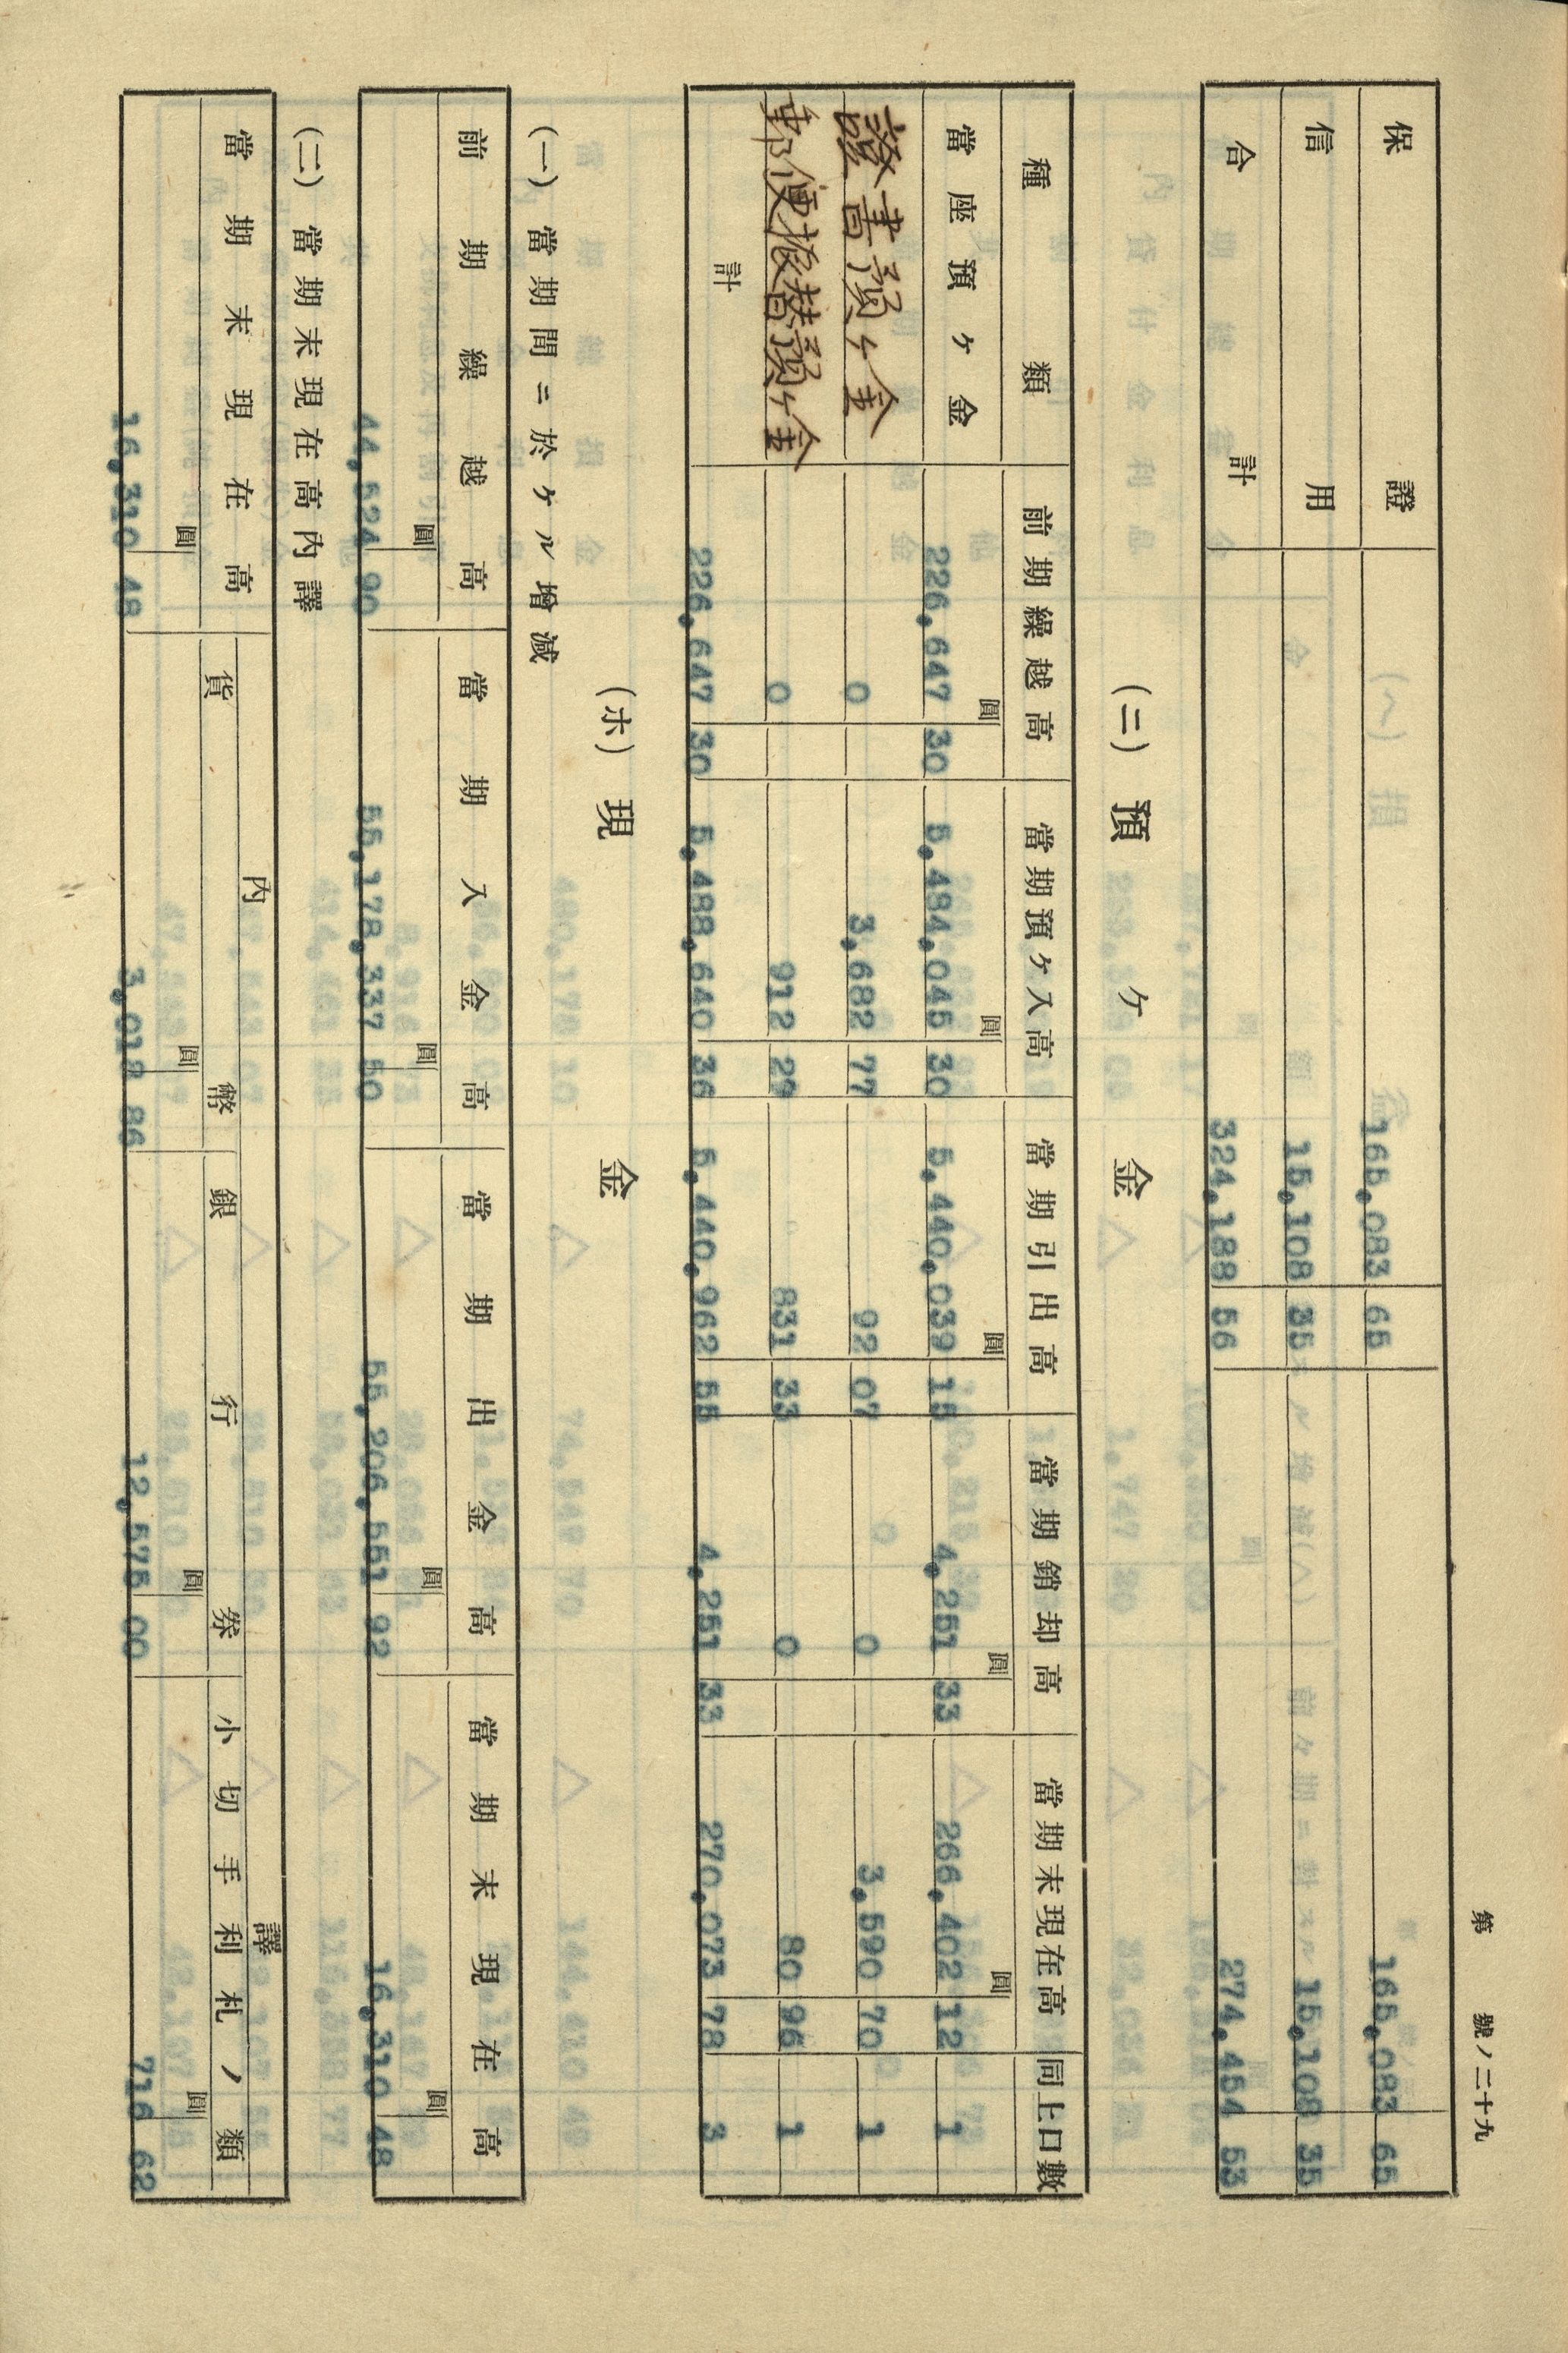 第 號ノ二十九
保證 165,083 65 165,083 65
信用 15,108 35 15,108 35
合計 324,188 56 274,454 53
(ニ) 預ケ金
種類 前期繰越高 當期預ケ入高 當期引出高 當期銷却高 當期末現在高 同上口數
圓 圓 圓 圓 圓
當座預ケ金 226,647 30 5,484,045 30 5,440,039 15 4,251 33 266,402 12 1
證書預ケ金 0 3,682 77 92 07 0 3,590 70 1
郵便振替預ケ金 0 912 29 831 33 0 80 96 1
計 226,647 30 5,488,640 36 5,440,962 55 4,251 33 270,073 78 3
(ホ) 現金
(一) 當期間ニ於ケル増減
前期繰越高 當期入金高 當期出金高 當期末現在高
圓 圓 圓 圓
44,524 90 55,178,337 50 55,206,551 92 16,310 48
(二) 當期末現在高內譯
當期末現在高 內譯
貨幣 銀行券 小切手利札ノ類
圓 圓 圓 圓
16,310 48 3,018 86 12,575 00 716 62